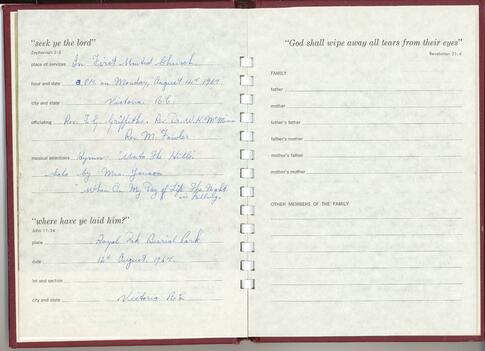 "seek ye the lord"
Zephaniah 2:3
place of services In First United Church
hour and date P.M. on Monday, August
city and state Victoria B.C.
officiating Rev. Griffiths, Rev. Dr. W.
Rev. M. Fowler
musical selections Hymn "Unto The Hills"
Solo by Mrs.
When On My Day of Life The Night
is Falling
"where have ye laid him?"
John 11:34
place Royal Oak Burial Park
date August,
lot and section
city and state Victoria B.C.
"God shall wipe away all tears from their eyes"
Revelation 21:4
FAMILY
father
mother
father's father
father's mother
mother's father
mother's mother
OTHER MEMBERS OF THE FAMILY